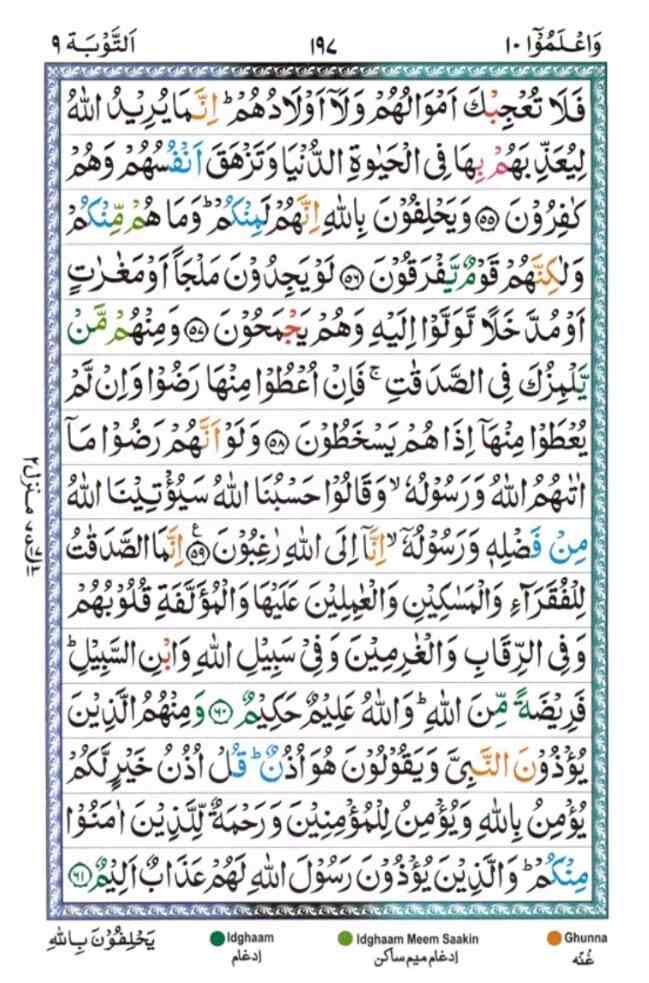 وَاعْلَمُوْٓا ١٠
١٩٧
اَلتَّوْبَة ٩
فَلَا تُعْجِبْكَ اَمْوَالُهُمْ وَلَآ اَوْلَادُهُمْ ؕ اِنَّمَا يُرِيْدُ اللّٰهُ
لِيُعَذِّبَهُمْ بِهَا فِى الْحَيٰوةِ الدُّنْيَا وَتَزْهَقَ اَنْفُسُهُمْ وَهُمْ
كٰفِرُوْنَ ۝٥٥ وَيَحْلِفُوْنَ بِاللّٰهِ اِنَّهُمْ لَمِنْكُمْ ؕ وَمَا هُمْ مِّنْكُمْ
وَلٰكِنَّهُمْ قَوْمٌ يَّفْرَقُوْنَ ۝٥٦ لَوْ يَجِدُوْنَ مَلْجَاً اَوْ مَغٰرٰتٍ
اَوْ مُدَّخَلًا لَّوَلَّوْا اِلَيْهِ وَهُمْ يَجْمَحُوْنَ ۝٥٧ وَمِنْهُمْ مَّنْ
يَّلْمِزُكَ فِى الصَّدَقٰتِ ۚ فَاِنْ اُعْطُوْا مِنْهَا رَضُوْا وَاِنْ لَّمْ
يُعْطَوْا مِنْهَآ اِذَا هُمْ يَسْخَطُوْنَ ۝٥٨ وَلَوْ اَنَّهُمْ رَضُوْا مَآ
اٰتٰىهُمُ اللّٰهُ وَرَسُوْلُهٗ ۙ وَقَالُوْا حَسْبُنَا اللّٰهُ سَيُؤْتِيْنَا اللّٰهُ
مِنْ فَضْلِهٖ وَرَسُوْلُهٗٓ ۙ اِنَّآ اِلَى اللّٰهِ رٰغِبُوْنَ ۝٥٩ اِنَّمَا الصَّدَقٰتُ
لِلْفُقَرَآءِ وَالْمَسٰكِيْنِ وَالْعٰمِلِيْنَ عَلَيْهَا وَالْمُؤَلَّفَةِ قُلُوْبُهُمْ
وَفِى الرِّقَابِ وَالْغٰرِمِيْنَ وَفِىْ سَبِيْلِ اللّٰهِ وَابْنِ السَّبِيْلِ ؕ
فَرِيْضَةً مِّنَ اللّٰهِ ؕ وَاللّٰهُ عَلِيْمٌ حَكِيْمٌ ۝٦٠ وَمِنْهُمُ الَّذِيْنَ
يُؤْذُوْنَ النَّبِىَّ وَيَقُوْلُوْنَ هُوَ اُذُنٌ ؕ قُلْ اُذُنُ خَيْرٍ لَّكُمْ
يُؤْمِنُ بِاللّٰهِ وَيُؤْمِنُ لِلْمُؤْمِنِيْنَ وَرَحْمَةٌ لِّلَّذِيْنَ اٰمَنُوْا
مِنْكُمْ ؕ وَالَّذِيْنَ يُؤْذُوْنَ رَسُوْلَ اللّٰهِ لَهُمْ عَذَابٌ اَلِيْمٌ ۝٦١
منزل ٢
يَحْلِفُوْنَ بِاللّٰهِ
Idghaam
ادغام
Idghaam Meem Saakin
ادغام میم ساکن
Ghunna
غُنّه